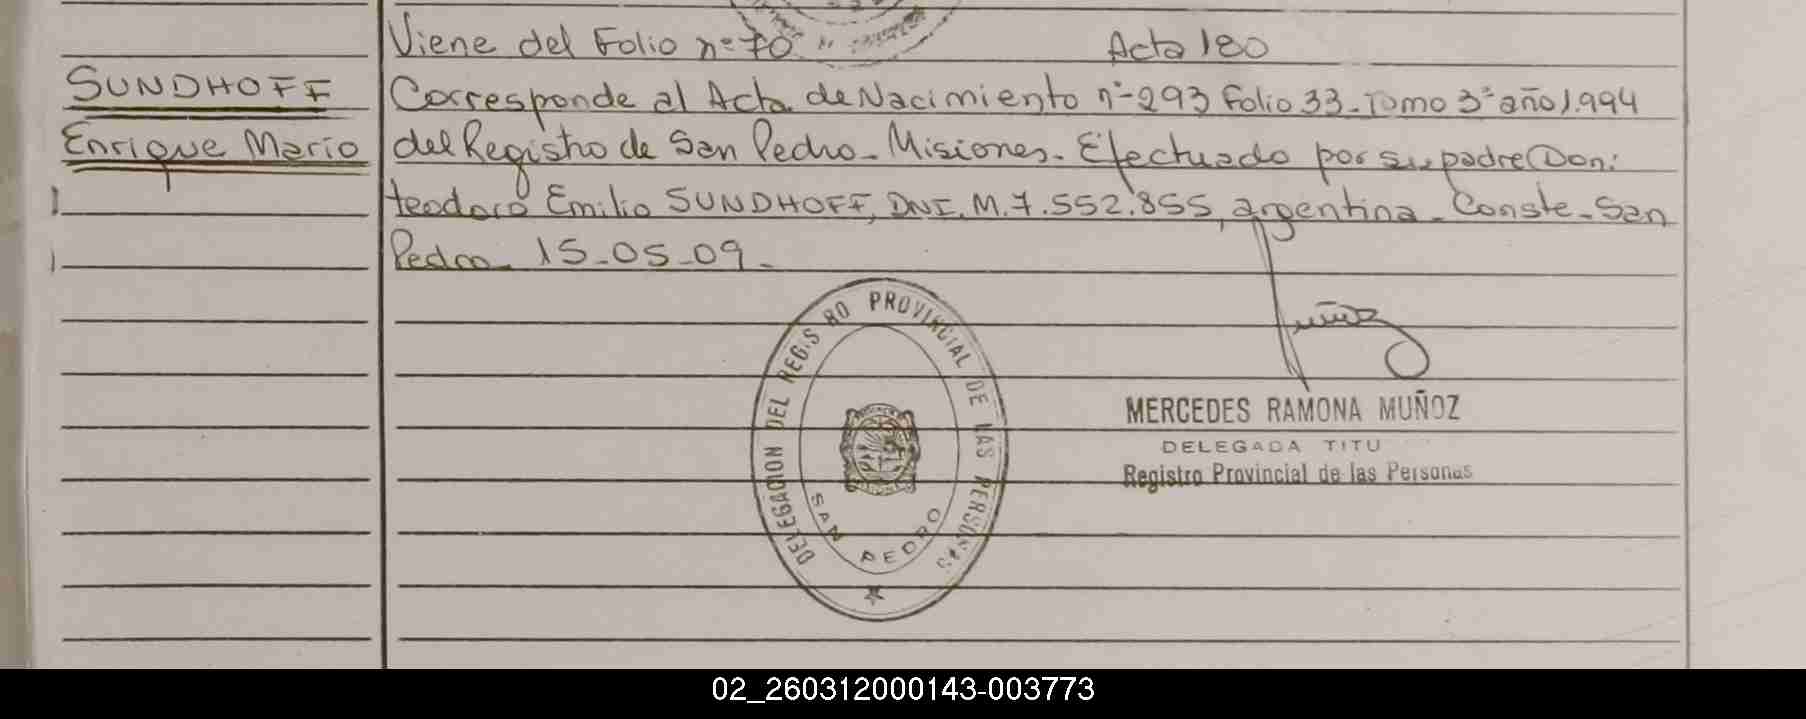 Viene del Folio nº 70 Acta 180
SUNDHOFF
Enrique Mario
Corresponde al Acta de Nacimiento nº 293 Folio 33 - Tomo 3º año 1.994
del Registro de San Pedro - Misiones - Efectuado por su padre Don:
teodoro Emilio SUNDHOFF, DNI. M. 7.552.855, argentina - Conste - San
Pedro - 15-05-09 -
DELEGACION DEL REGIS RO PROVINCIAL DE LAS PERSONAS
SAN PEDRO
MERCEDES RAMONA MUÑOZ
DELEGADA TITU
Registro Provincial de las Personas
02_260312000143-003773